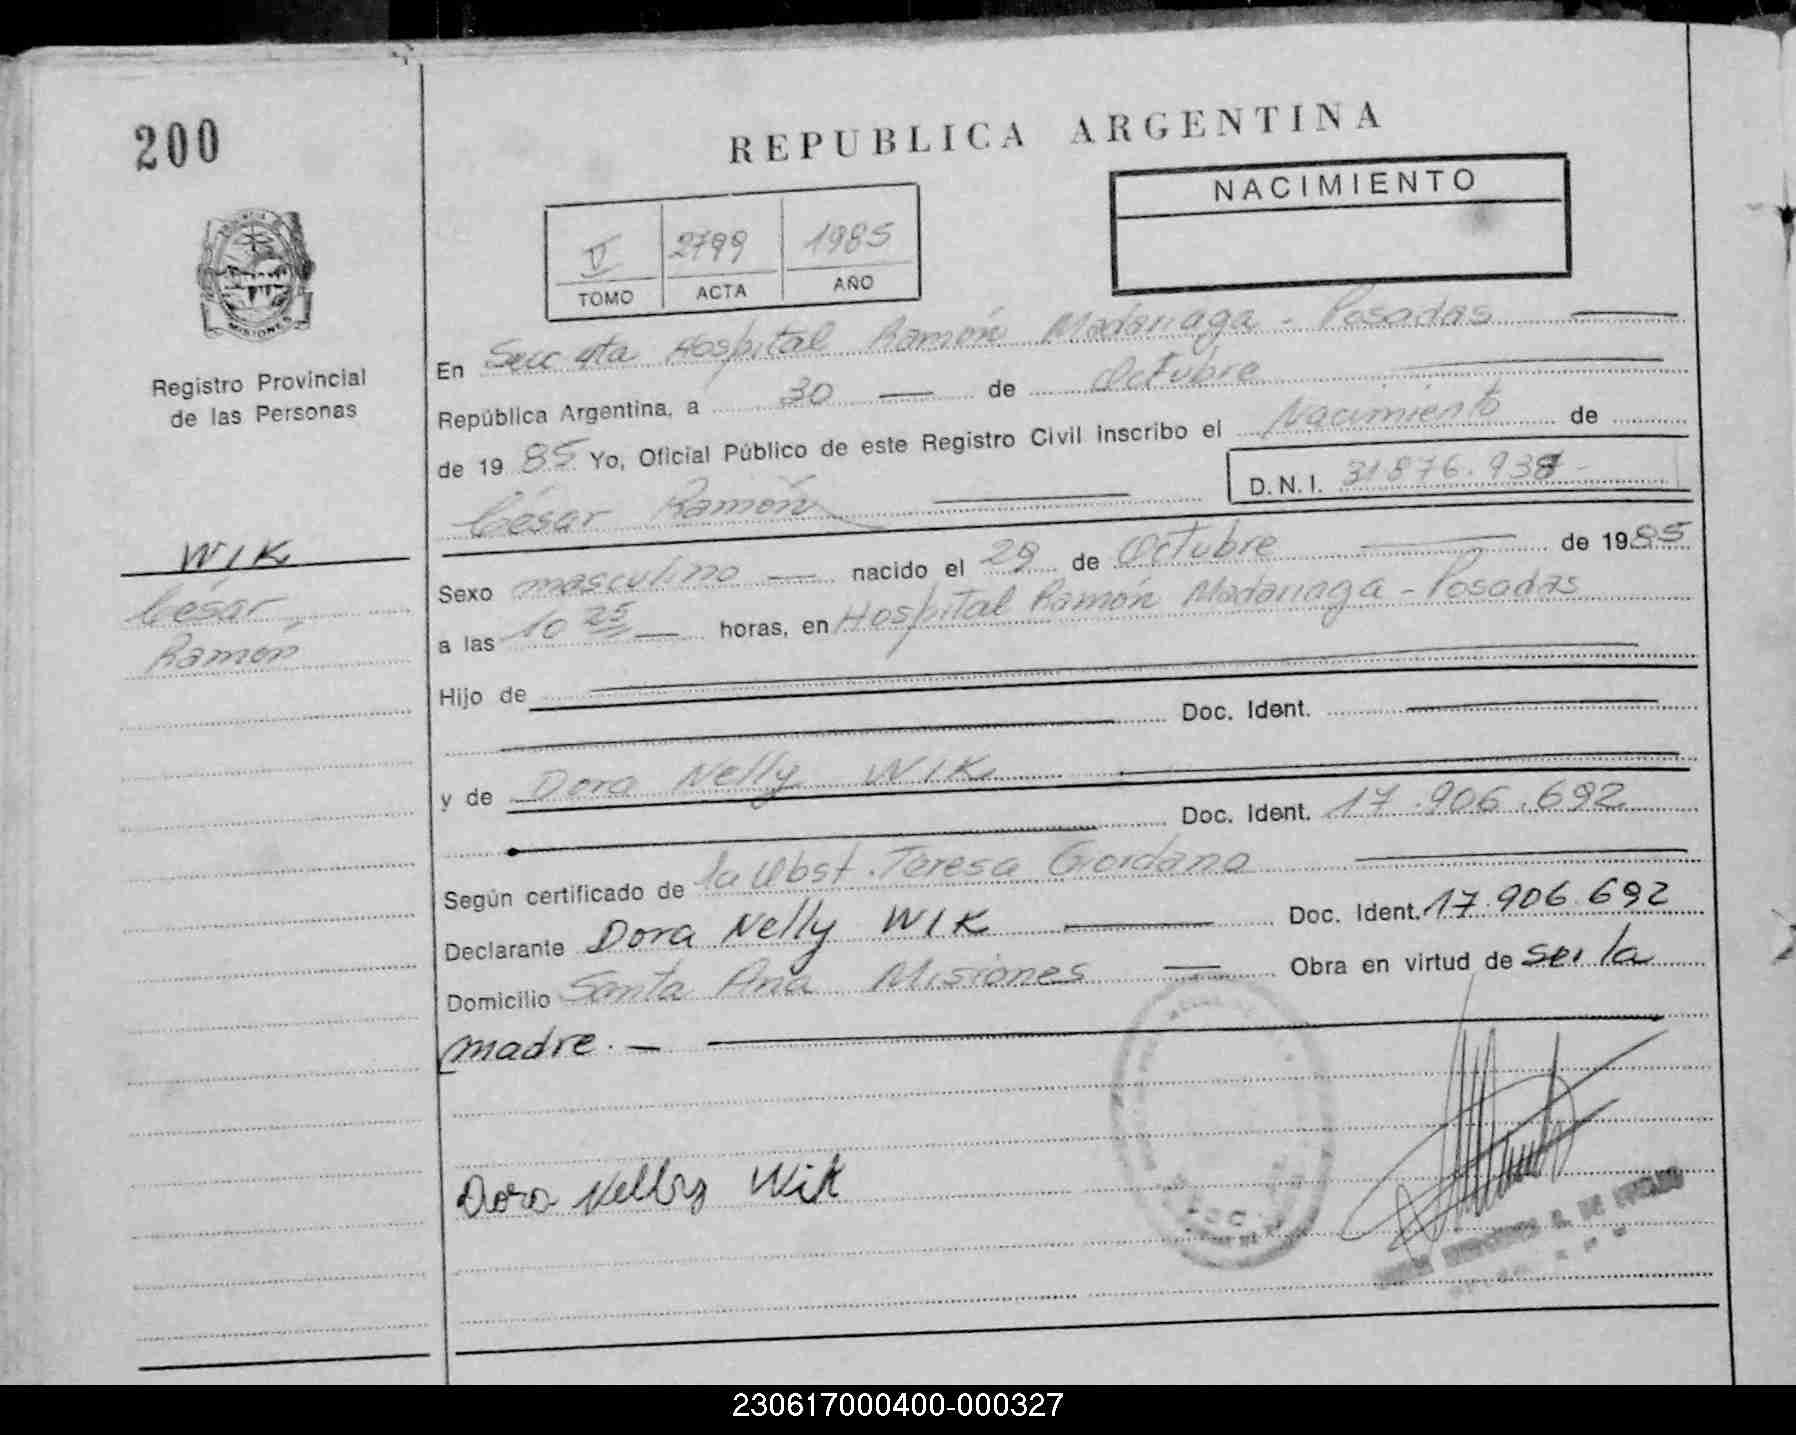 200
REPUBLICA ARGENTINA
NACIMIENTO
V 2799 1985
TOMO ACTA AÑO
MISIONES
Registro Provincial
de las Personas
En Secc 4ta Hospital Ramón Madariaga - Posadas
República Argentina, a 30 — de Octubre
de 19 85 Yo, Oficial Público de este Registro Civil inscribo el Nacimiento de
César Ramón
D.N.I. 31.876.937-
WIK
César
Ramón
Sexo masculino — nacido el 29 de Octubre de 1985
a las 10 25 — horas, en Hospital Ramón Madariaga - Posadas
Hijo de
Doc. Ident.
y de Dora Nelly WIK
Doc. Ident. 17.906.692
Según certificado de la Obst. Teresa Giordano
Declarante Dora Nelly WIK — Doc. Ident. 17.906.692
Domicilio Santa Ana Misiones — Obra en virtud de ser la
madre. —
Dora Nelly Wik
230617000400-000327